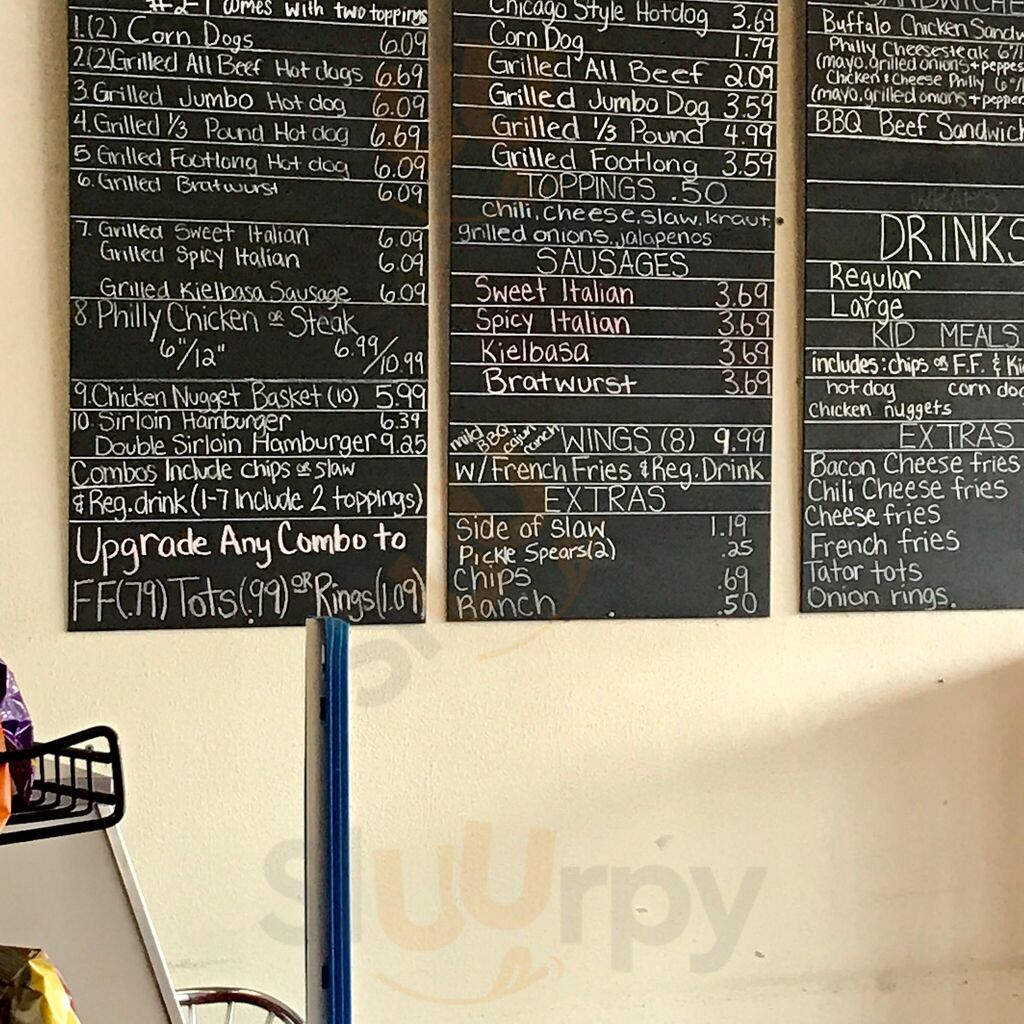 #2-7 comes with two toppings
1.(2) Corn Dogs 6.09
2.(2)Grilled All Beef Hot dogs 6.69
3.Grilled Jumbo Hot dog 6.09
4.Grilled 1/3 Pound Hot dog 6.69
5 Grilled Footlong Hot dog 6.09
6.Grilled Bratwurst 6.09
7. Grilled Sweet Italian 6.09
Grilled Spicy Italian 6.09
Grilled Kielbasa Sausage 6.09
8 Philly Chicken or Steak
6"/12" 6.99/10.99
9.Chicken Nugget Basket (10) 5.99
10 Sirloin Hamburger 6.39
Double Sirloin Hamburger 9.25
Combos Include chips or slaw
& Reg.drink (1-7 Include 2 toppings)
Upgrade Any Combo to
FF(.79) Tots(.99) or Rings(1.09)
Chicago Style Hotdog 3.69
Corn Dog 1.79
Grilled All Beef 2.09
Grilled Jumbo Dog 3.59
Grilled 1/3 Pound 4.99
Grilled Footlong 3.59
TOPPINGS .50
Chili, cheese, slaw, kraut,
grilled onions, jalapenos
SAUSAGES
Sweet Italian 3.69
Spicy Italian 3.69
Kielbasa 3.69
Bratwurst 3.69
mild BBQ cajun ranch WINGS (8) 9.99
w/ French Fries & Reg. Drink
EXTRAS
Side of slaw 1.19
Pickle Spears(2) .25
Chips .69
Ranch .50
Buffalo Chicken Sandw
Philly Cheesesteak 6"/
(mayo, grilled onions + peppe
Chicken & Cheese Philly 6"/
(mayo, grilled onions + pepper
BBQ Beef Sandwich
WRAPS
DRINKS
Regular
Large
KID MEALS
includes: chips or F.F. & Ki
hot dog corn do
chicken nuggets
EXTRAS
Bacon Cheese fries
Chili Cheese fries
Cheese fries
French fries
Tator tots
Onion rings.
Sluurpy